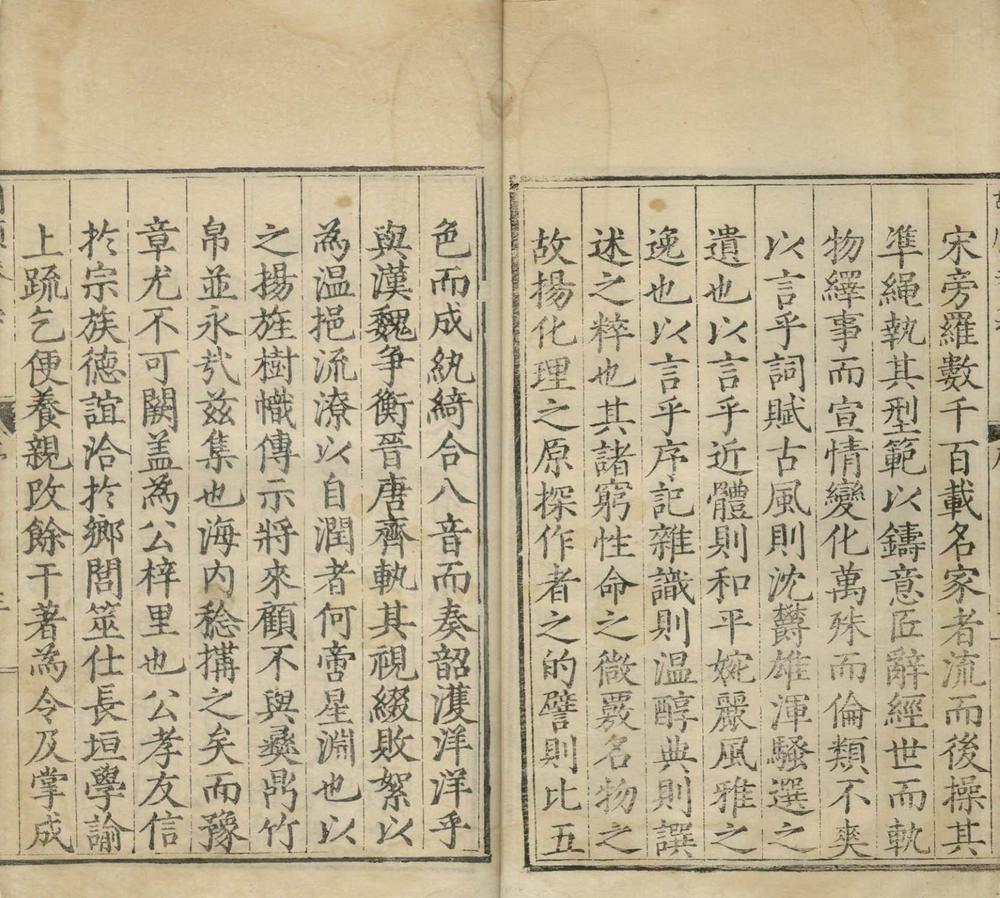 宋旁羅數千百載名家者流而後操其
準繩執其型範以鑄意匠辭經世而軌
物繹事而宣情變化萬殊而倫類不爽
以言乎詞賦古風則沈欝雄渾騷選之
遺也以言乎近體則和平婉麗風雅之
逸也以言乎序記雜識則温醇典則譔
述之粹也其諸窮性命之微覈名物之
故揚化理之原探作者之的譬則比五
色而成紈綺合八音而奏韶濩洋洋乎
與漢魏争衡晉唐齊軌其視綴敗絮以
為温挹流潦以自潤者何啻星淵也以
之揚旌樹幟傳示將來顧不與彝鼎竹
帛並永㢤兹集也海内稔搆之矣而豫
章尤不可闕盖為公梓里也公孝友信
扵宗族德誼洽扵鄉閭筮仕長垣學諭
上䟽乞便養親改餘干著為令及掌成